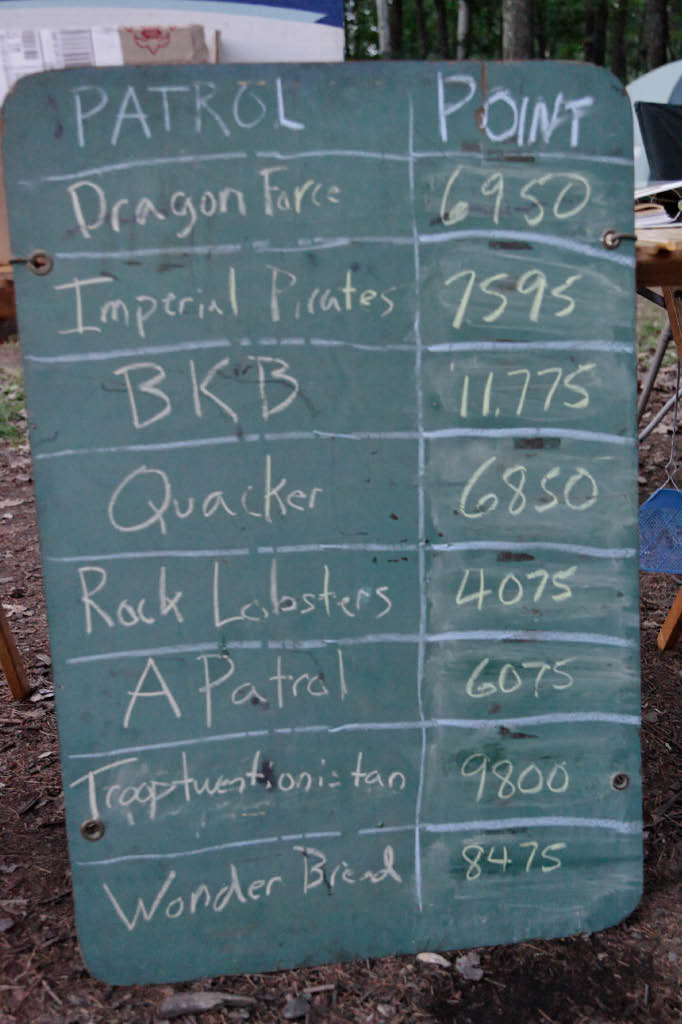 PATROL POINT
Dragon Force 6950
Imperial Pirates 7595
BKB 11,775
Quacker 6850
Rock Lobsters 4075
A Patrol 6075
Trooptwentionistan 9800
Wonder Bread 8475